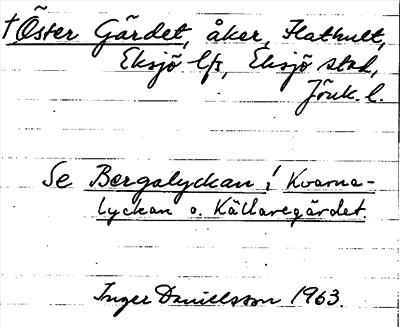 †Öster Gärdet, åker, Hathult,
Eksjö lfs, Eksjö stad,
Jönk. l.
Se Bergalyckan, Kvarna-
lyckan o. Källaregärdet.
Inger Danielsson 1963.